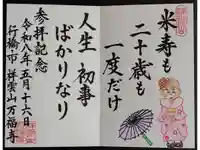 米寿も
二十歳も
一度だけ
人生 初事
ばかりなり
参拝記念
令和八年五月十六日
行橋市 祥雲山万福寺